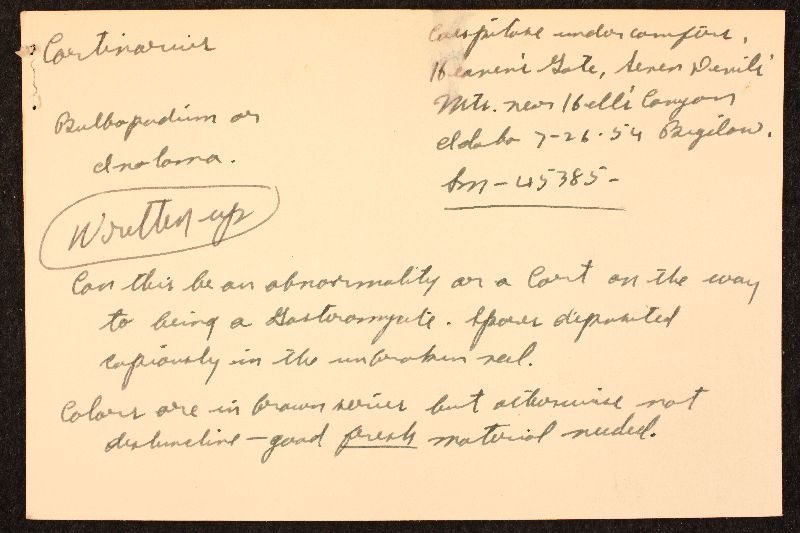 Cortinarius
Caespitose under conifers,
Heaven's Gate, Seven Devils
Mts. near Hell's Canyon
Idaho 7-26-54 Bigelow.
Sm-45385-
Bulbopodium or
Inoloma.
Written up
Can this be an abnormality or a Cort on the way
to being a Gasteromycete. Spores deposited
copiously in the unbroken veil.
Colors are in brown series but otherwise not
distinctive - good fresh material needed.